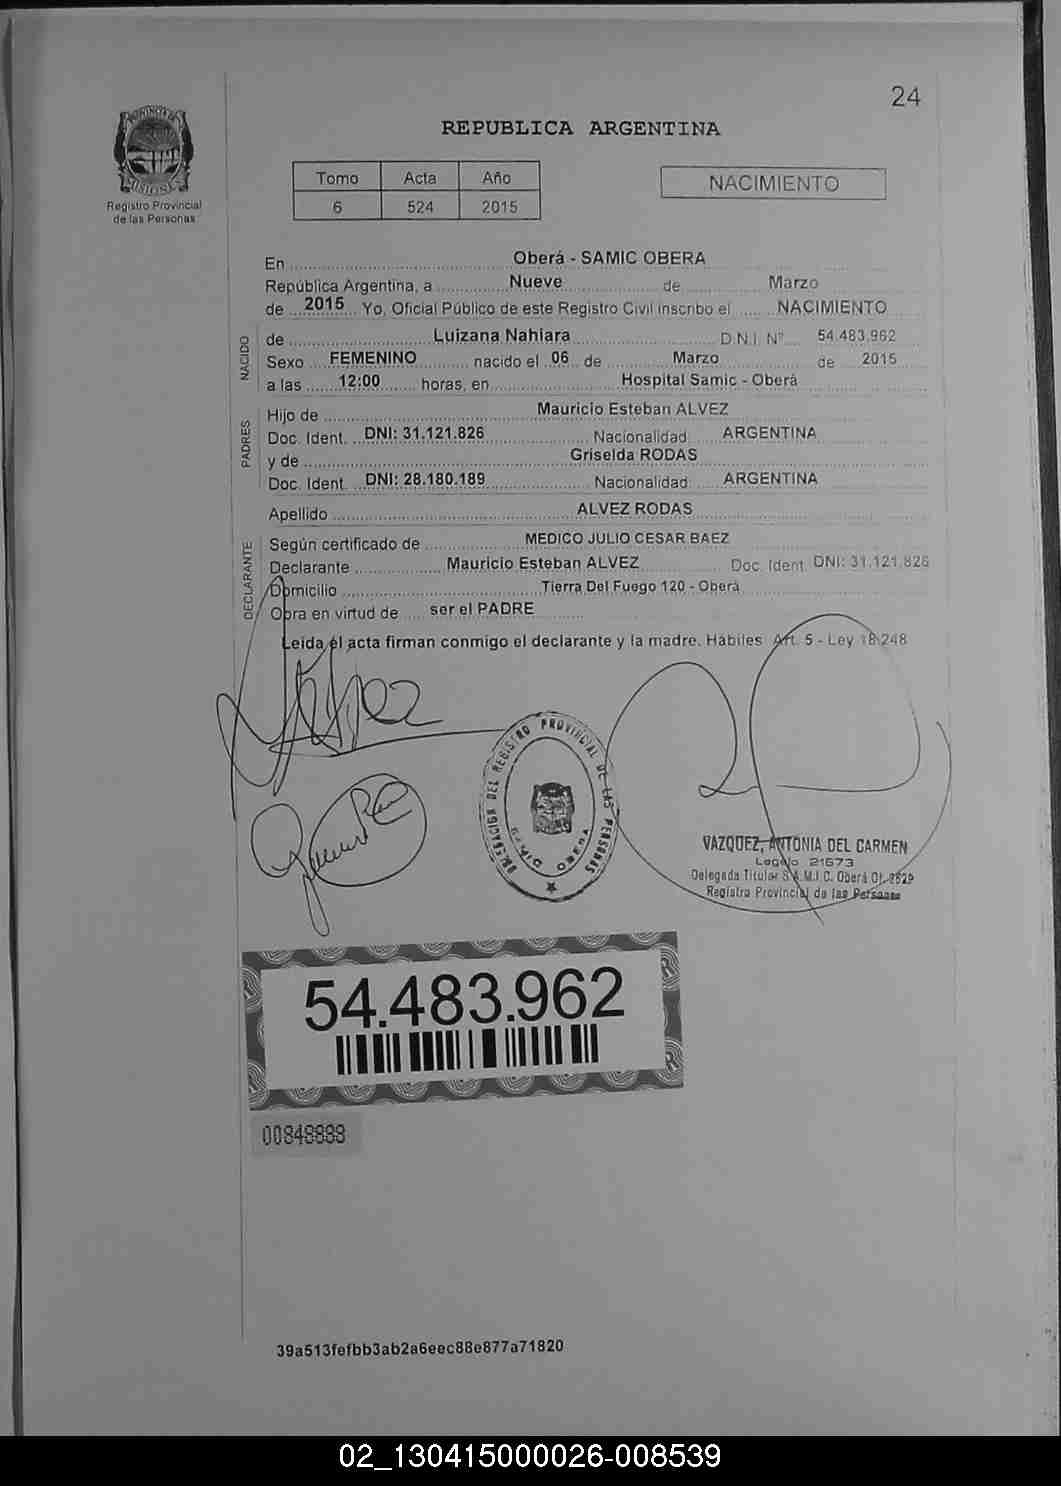 24
PROVINCIA DE
MISIONES
Registro Provincial
de las Personas
REPUBLICA ARGENTINA
Tomo Acta Año
6 524 2015
NACIMIENTO
En Oberá - SAMIC OBERA
República Argentina, a Nueve de Marzo
de 2015 Yo, Oficial Público de este Registro Civil inscribo el NACIMIENTO
NACIDO
de Luizana Nahiara D.N.I. Nº 54.483.962
Sexo FEMENINO nacido el 06 de Marzo de 2015
a las 12:00 horas, en Hospital Samic - Oberá
PADRES
Hijo de Mauricio Esteban ALVEZ
Doc. Ident. DNI: 31.121.826 Nacionalidad ARGENTINA
y de Griselda RODAS
Doc. Ident. DNI: 28.180.189 Nacionalidad ARGENTINA
Apellido ALVEZ RODAS
DECLARANTE
Según certificado de MEDICO JULIO CESAR BAEZ
Declarante Mauricio Esteban ALVEZ Doc. Ident. DNI: 31.121.826
Domicilio Tierra Del Fuego 120 - Oberá
Obra en virtud de ser el PADRE
Leída el acta firman conmigo el declarante y la madre. Hábiles Art. 5 - Ley 18.248
DELEGACION DEL REGISTRO PROVINCIAL DE LAS PERSONAS
OBERA
VAZQUEZ, ANTONIA DEL CARMEN
Legajo 21573
Delegada Titular S.A.M.I.C. Oberá Of. 2829
Registro Provincial de las Personas
54.483.962
00848888
39a513fefbb3ab2a6eec88e877a71820
02_130415000026-008539